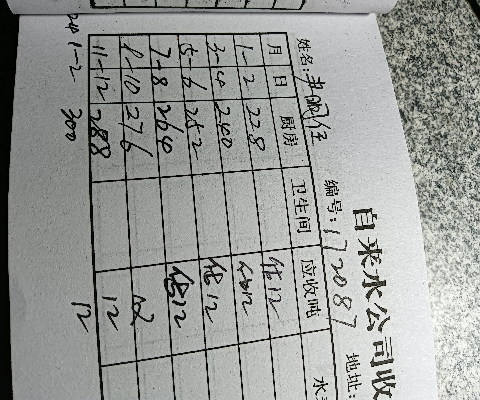 自来水公司收
编号：172087
地址：
月 日 厨房 卫生间 应收吨 水
1-2 228 估12
3-4 240 估12
5-6 252 估12
7-8 264 估12
9-10 276 12
11-12 288 12
1-2 300 12